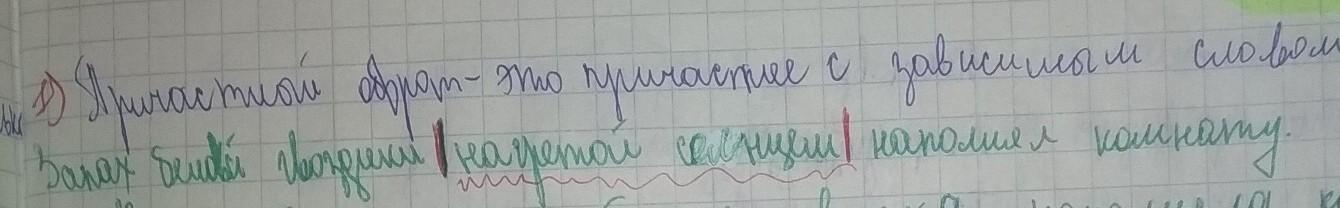 1) Причастной оборот - это причастие с зависимым словом
Запах белой гвоздики нагретой солнцем наполнял комнату.